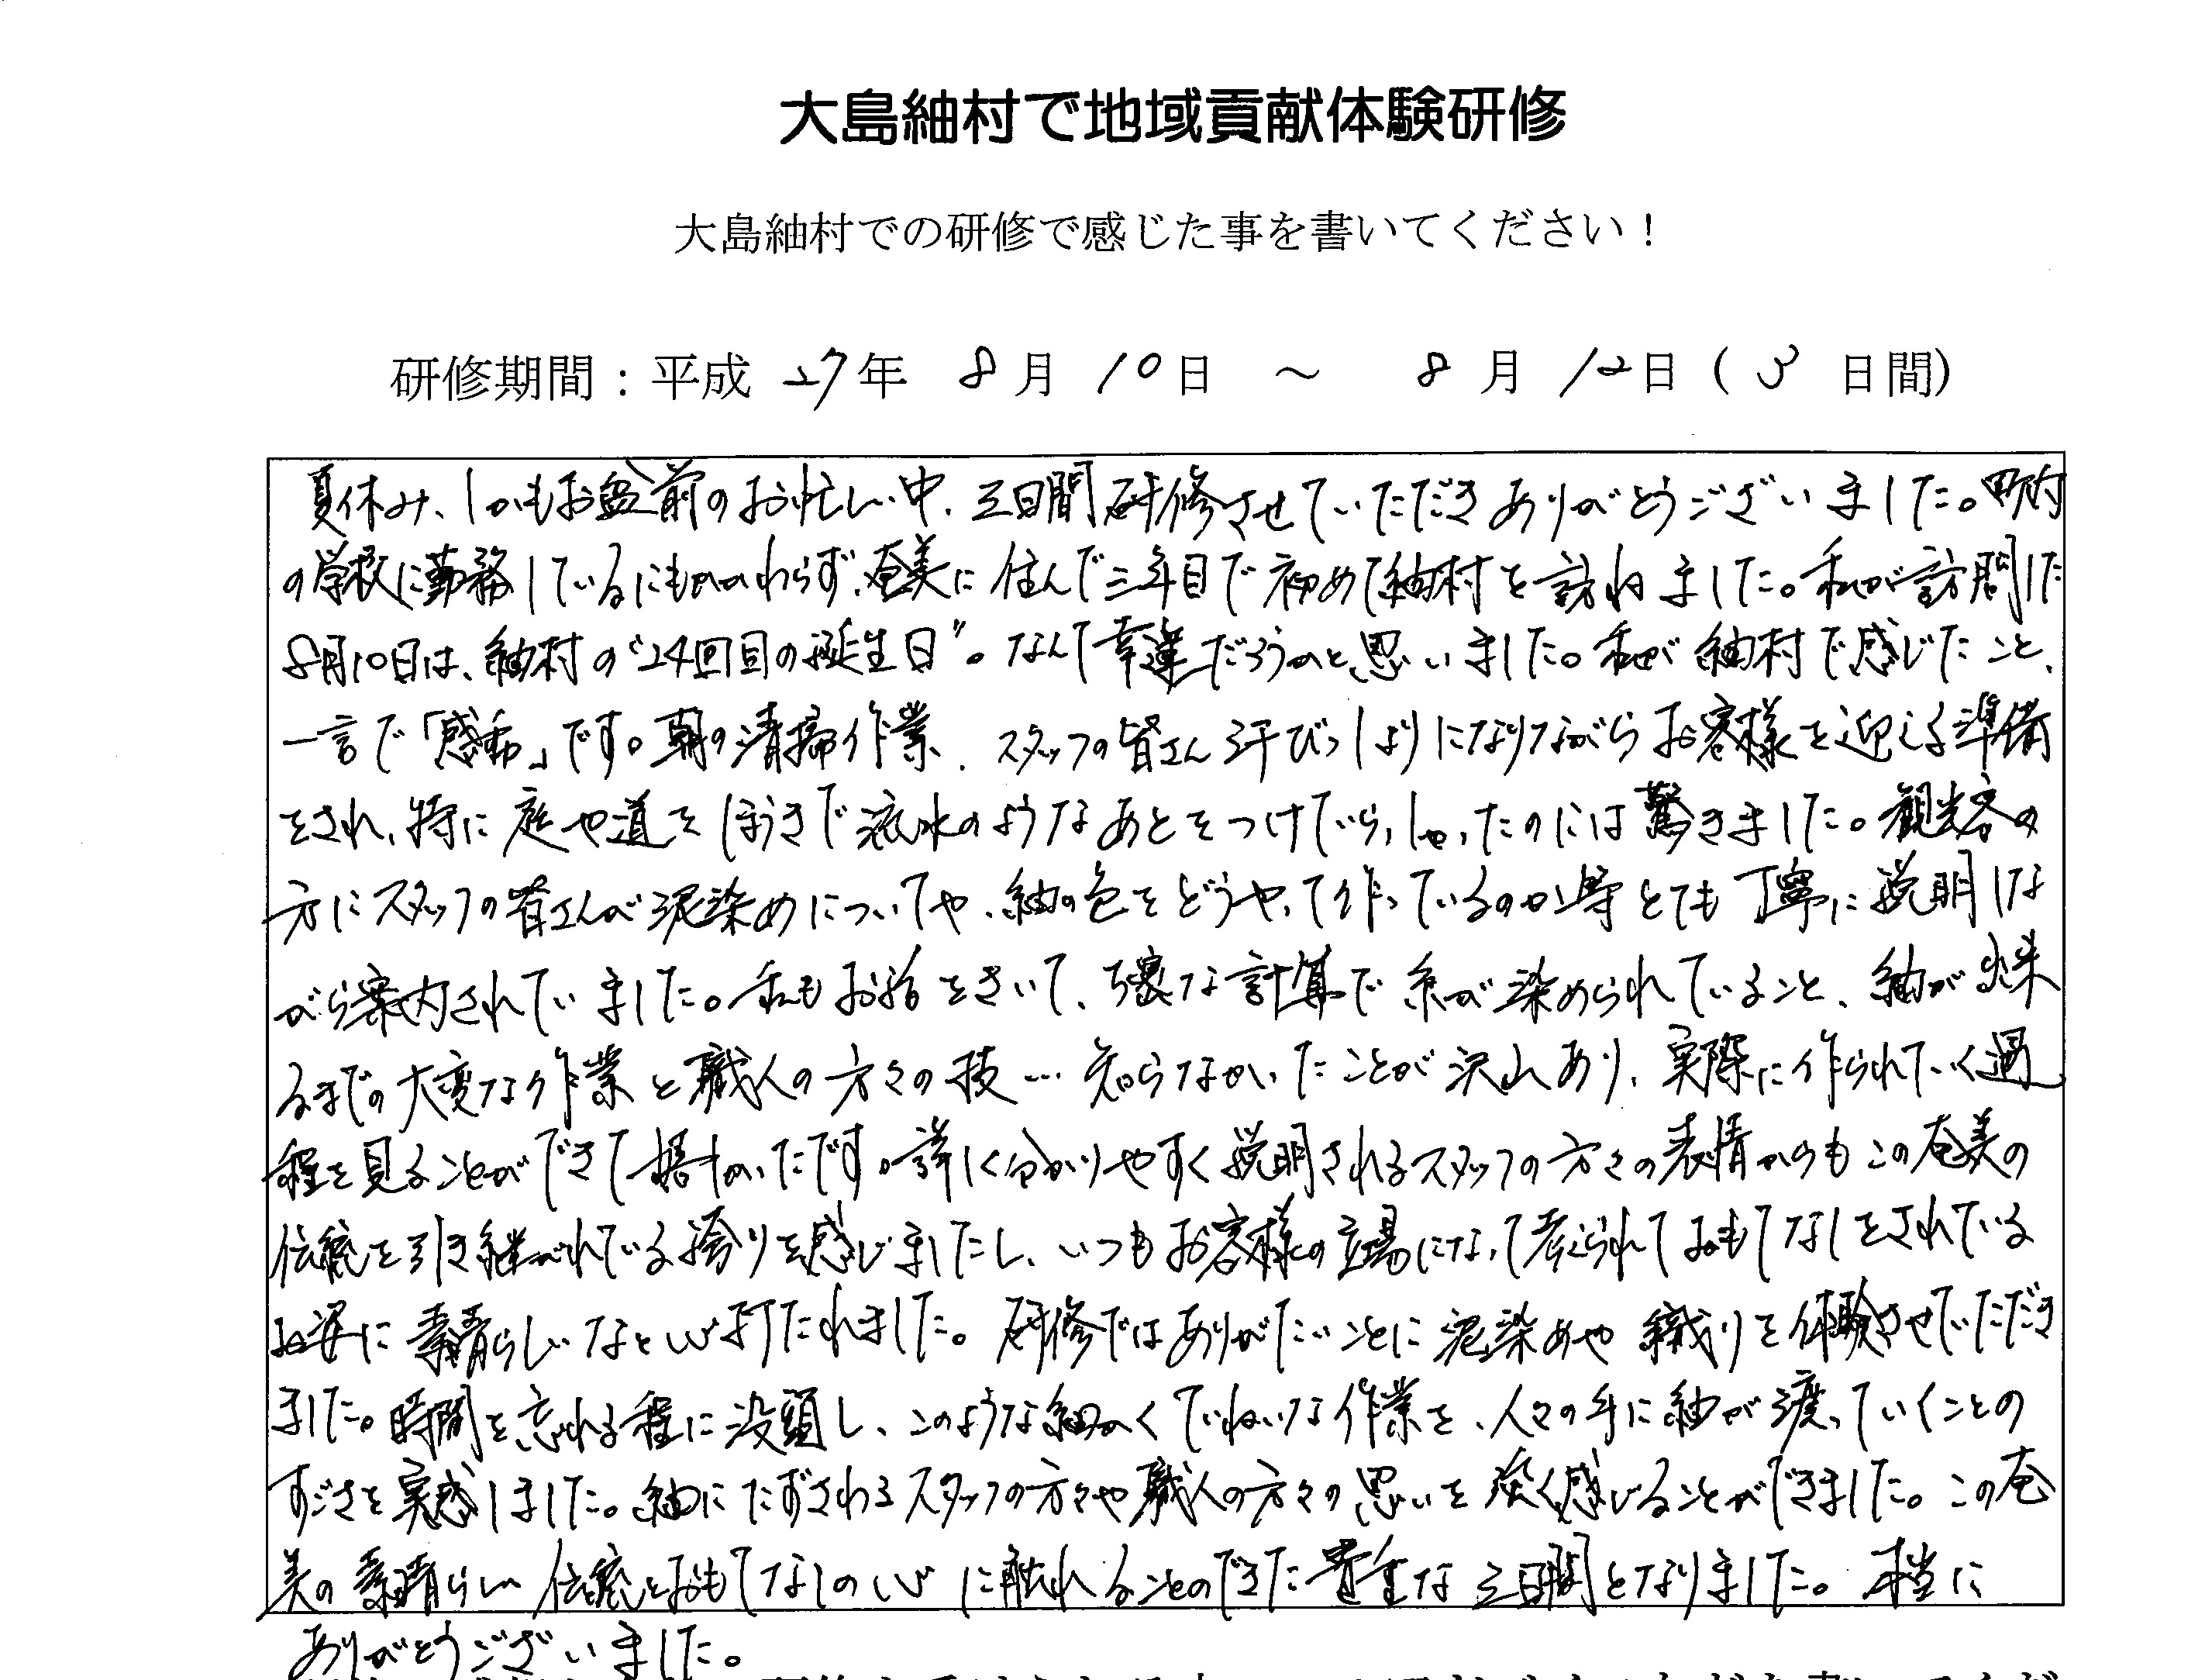 大島紬村で地域貢献体験研修
大島紬村での研修で感じた事を書いてください！
研修期間：平成 27年 8月 10日 ～ 8月 12日（3日間）
夏休み、しかもお盆前のお忙しい中、三日間研修させていただきありがとうございました。町内
の学校に勤務しているにもかかわらず、奄美に住んで三年目で初めて紬村を訪ねました。私が訪問した
8月10日は、紬村の“24回目の誕生日”。なんて幸運だろうかと思いました。私が紬村で感じたこと、
一言で「感動」です。朝の清掃作業、スタッフの皆さん汗びっしょりになりながらお客様を迎える準備
をされ、特に庭や道をほうきで流水のようなあとをつけていらっしゃったのには驚きました。観光客の
方にスタッフの皆さんが泥染めについてや、紬の色をどうやって作っているのか等とても丁寧に説明しな
がら案内されていました。私もお話をきいて、な計算で糸が染められていること、紬が出来
るまでの大変な作業と職人の方々の技…知らなかったことが沢山あり、実際に作られていく過
程を見ることができてかったです。詳しく分かりやすく説明されるスタッフの方々の表情からもこの奄美の
伝統を引き継がれている誇りを感じましたし、いつもお客様の立場になって考えられておもてなしをされている
お姿に素晴らしいなと心打たれました。研修ではありがたいことに泥染めや織りを体験させていただき
ました。時間を忘れる程に没頭し、このような細かくていねいな作業を、人々の手に紬が渡っていくことの
すごさを実感しました。紬にたずさわるスタッフの方々や職人の方々の思いを強く感じることができました。この奄
美の素晴らしい伝統とおもてなしの心に触れることのできた貴重な三日間となりました。本当に
ありがとうございました。